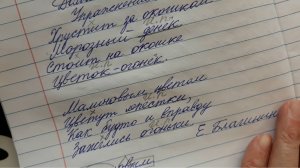 Упражнение
Хрустит за окошком
Морозный денёк.
Стоит на окошке
Цветок-огонёк.
Малиновым цветом
Цветут лепестки,
Как будто и вправду
Зажглись огоньки.
Е. Благинина